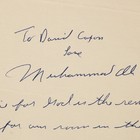 To David
Love
Muhammad Ali
for God is the
for our room in the